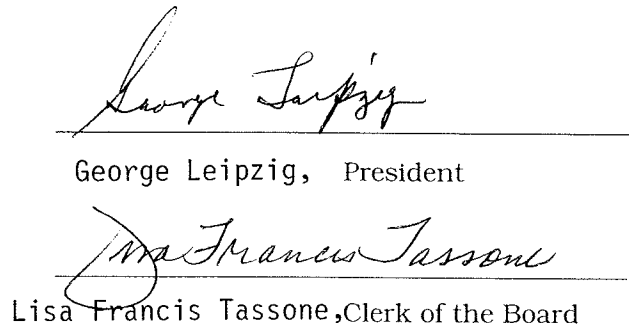 George Leipzig
George Leipzig, President
Lisa Francis Tassone
Lisa Francis Tassone,Clerk of the Board